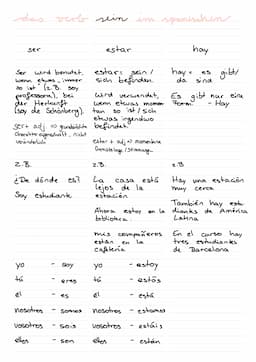 das verb sein im spanischen
ser
estar
hay
Ser wird benutzt,
wenn etwas immer
so ist (z.B. soy
professora), bei
der Herkunft
(soy de Schönberg).
ser + adj → grundsätzliche
Charaktereigenschaft, nicht
veränderlich
z.B.
¿De dónde es?
Soy estudiante
yo - soy
tú - eres
él - es
nosotros - somos
vosotros - sois
ellos - son
estar: sein /
sich befinden
Wird verwendet,
wenn etwas momentan
so ist / sich
etwas irgendwo
befindet.
Estar + adj → momentane
z.B.
La casa está
lejos de la
estación
Ahora estoy en la
biblioteca
mis compañeros
están en la
cafetería
yo - estoy
tú - estás
él - está
nosotros - estamos
vosotros - estáis
ellos - están
hay = es gibt/
da sind
Es gibt nur eine
Form - Hay
z.B
Hay una estación
muy cerca
También hay estu-
diantes de América
Latina
En el curso hay
tres estudiantes
de Barcelona